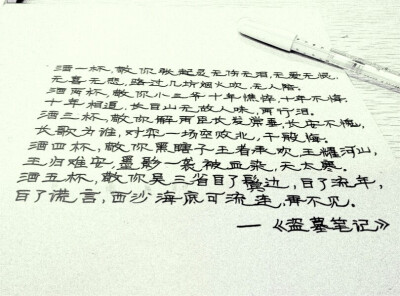 酒一杯，敬你张起灵无伤无泪，无爱无恨，
无喜无悲，路过几坊烟火吹，无人陪。
酒两杯，敬你小三爷十年憔悴，十年不悔，
十年相逢，长白山无故人味，两行泪。
酒三杯，敬你解雨臣长发常垂，长安不愧，
长歌为谁，对弈一场空败北，干殷梅。
酒四杯，敬你黑瞎子王者来欢，王耀河山，
王归难安，墨影一袭被血染，天太寒。
酒五杯，敬你吴三省白了鬓边，白了流年，
白了谎言，西沙海底可流连，再不见。
一《盗墓笔记》